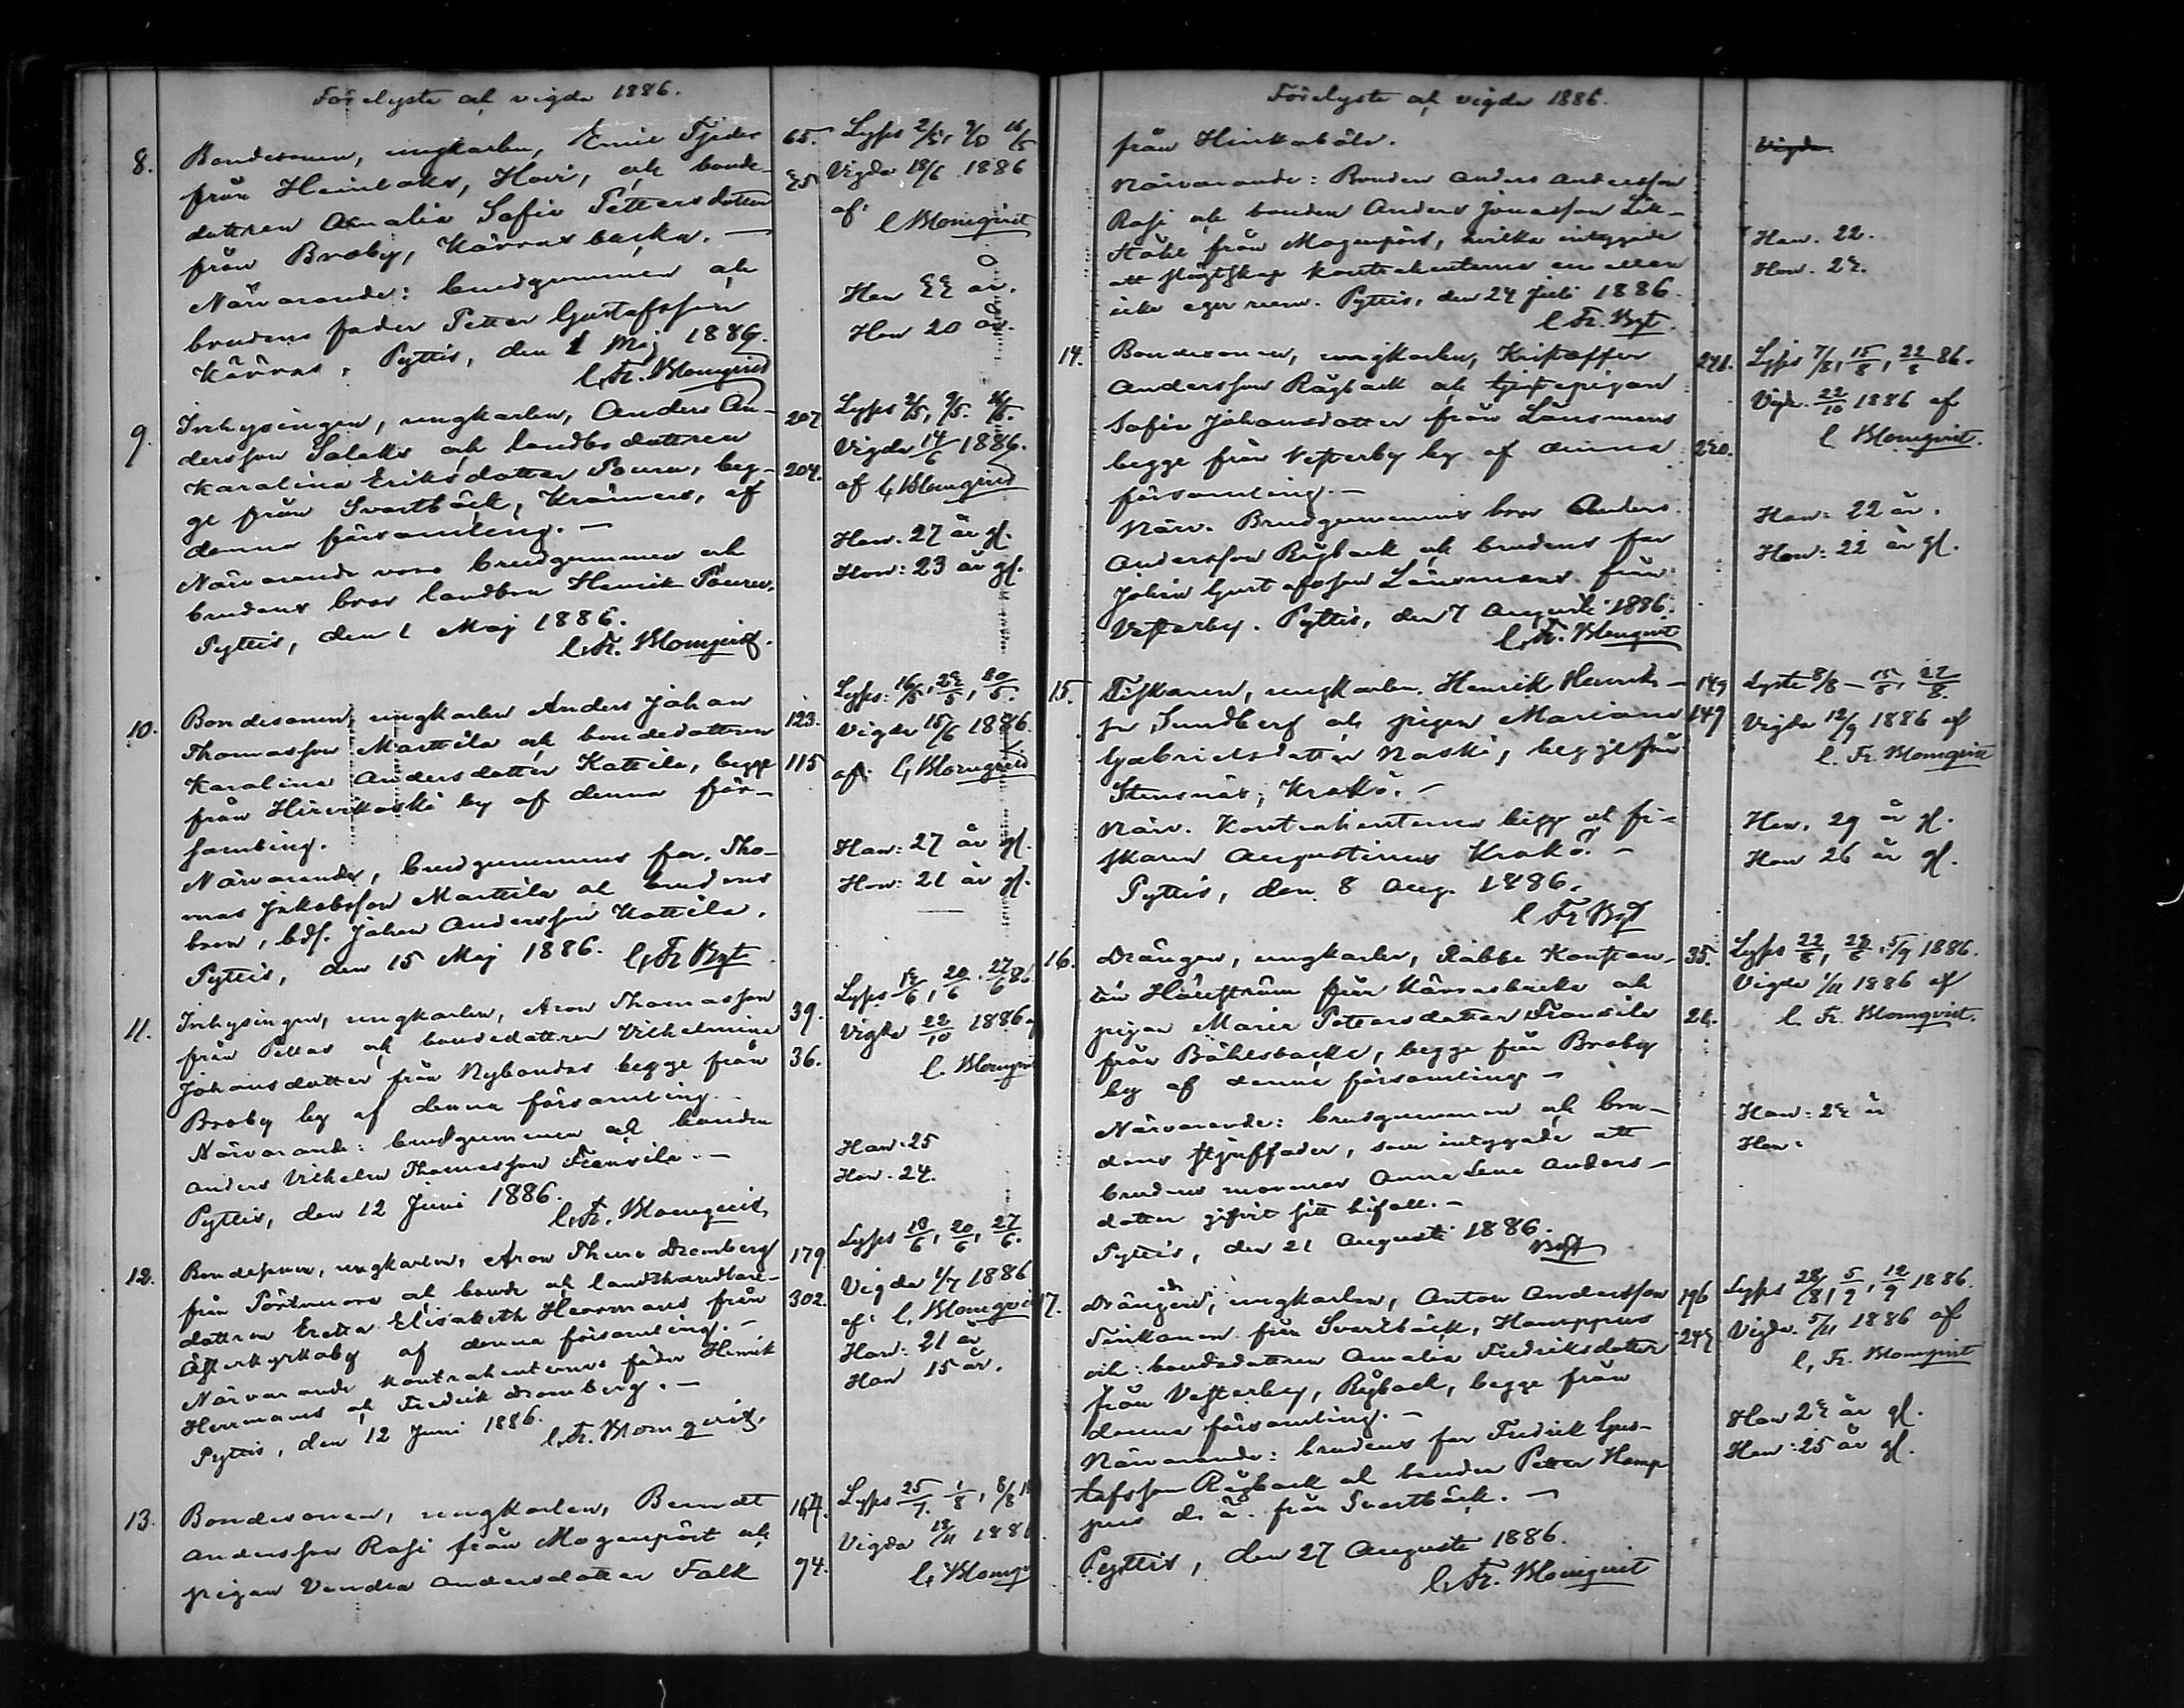 Förelyste och vigde 1886.
8. Bondesonen, ungkarlen, Emil Tjeder 65. Lysts 2/5, 9/5 16/5
från Heinlaks, Havi, och bonde- Vigde 18/6 1886
dottren Amalia Sofia Pettersdotter af
från Broby, Kärrasbacka. — C Blomqvist
Närvarande: brudgummen och Han 22 år.
brudens fader Petter Gustafsson Hon 20 år.
Kärras, Pyttis, den 1 Maj 1886.
C. Fr. Blomqvist
9. Inhysingen, ungkarlen, Anders An- 207 Lysts 2/5, 9/5. 16/5.
dersson Salaks och landbodottren Vigde 14/6 1886.
Karolina Eriksdotter Pouru, beg- 204. af C. Blomqvist
ge från Svartbäck, Krämars, af
denna församling. — Han. 27 år gl.
Närvarande voro brudgummen och Hon: 23 år gl.
brudens bror landbon Henrik Pouru.
Pyttis, den 1 Maj 1886.
C. Fr. Blomqvist.
10. Bondesonen, ungkarlen Anders Johan 123. Lysts: 16/5, 23/5, 30/5.
Thomasson Marttila och bondedottren Vigde 15/6 1886.
Karolina Andersdotter Kattila, begge 115 af C. Blomqvist
från Hirvikoski by af denna för-
samling.
Närvarande, brudgummens far, Tho- Han: 27 år gl.
mas Jakobsson Marttila och brudens Hon: 21 år gl.
bror, bds. Johan Andersson Kattila.
Pyttis, den 15 Maj 1886. C. Fr. Bqt
11. Inhysingen, ungkarlen, Aron Thomasson 39. Lysts 13/6, 20/6. 27/6 86
från Pellas och bondedottren Vilhelmina Vigde 22/10 1886 af
Johansdotter från Nybondas begge från 36. C. Blomqvist
Broby by af denna församling.
Närvarande: brudgummen och bonden Han: 25
Anders Vilhelm Thomasson Fransila. — Hon. 24.
Pyttis, den 12 Juni 1886.
C. Fr. Blomqvist.
12. Bondesonen, ungkarlen, Aron Thure Dromberg 179. Lysts 13/6, 20/6, 27/6.
från Pörtnoro och bonde och landthandlare- Vigde 1/7 1886
dottren Erika Elisabeth Herrmans från 302. af C. Blomqvist
Österkyrkoby af denna församling. — Han: 21 år
Närvarande kontrahenternes fäder Henrik Hon 15 år.
Herrmans och Fredrik Dromberg. —
Pyttis, den 12 Juni 1886.
C. Fr. Blomqvist.
13. Bondesonen, ungkarlen, Berndt 164. Lysts 25/7. 1/8, 8/8
Andersson Rasi från Mogenpört och Vigde 18/11 1886
pigan Vendia Andersdotter Falk 74. C. Blomqv
Förelyste och vigde 1886.
från Hinkaböle. Vigde
Närvarande: Bonden Anders Andersson
Rasi och bonden Anders Jonasson Lill-
från Mogenpört, hvilka intygade Han. 22.
att slägtskap kontrahenterne emellan Hon. 22.
icke eger rum. Pyttis, den 24 Juli 1886.
C. Fr. Bqt.
14. Bondesonen, ungkarlen, Kristoffer 241. Lysts 7/8, 15/8, 22/8 86.
Andersson Rågback och tjenstepigan Vigde 22/10 1886 af
Sofia Johansdotter från Länsmans C. Blomqvist.
begge från Vesterby by af denna 220.
församling. —
Närv. Brudgummens bror Anders Han: 22 år.
Andersson Rågback och brudens far Hon: 22 år gl.
Johan Gustafsson Länsmans från
Vesterby. Pyttis, den 7 Augusti 1886.
C. Fr. Blomqvist
15. Fiskaren, ungkarlen, Henrik Henriks- 149 Lyste 8/8 — 15/8, 22/8.
sn Sundberg och pigan Mariana 149 Vigde 12/9 1886 af
Gabrielsdotter Naski, begge från C. Fr. Blomqvist
Stensnäs, Krokö. —
Närv. Kontrahenterne begge och fi- Han. 29 år gl.
skaren Augustinus Krokö. — Hon 26 år gl.
Pyttis, den 8 Aug. 1886.
C Fr Bqt
16. Drängen, ungkarlen, Rabbe Konstan- 35. Lysts 22/8, 29/8, 5/9 1886.
tin från Kärrasbacka och Vigde 1/11 1886 af
pigan Maria Pettersdotter Fransila 26. C. Fr. Blomqvist.
från Böhlsbacka, begge från Broby
by af denna församling —
Närvarande: brudgummen och bru- Han: 22 år
dens styffader, som intygade att Hon:
brudens mormor Anna Lena Anders-
dotter gifvit sitt bifall. —
Pyttis, den 21 Augusti 1886.
Bqt
17. Drängen, ungkarlen, Anton Andersson 196 Lysts 28/8, 5/9, 12/9 1886.
Finkanen från Svartbäck, Hamppus Vigde. 5/11 1886 af
och bondedottren Amalia Fredriksdotter 242 C. Fr. Blomqvist
från Vesterby, Rågback, begge från
denna församling. — Han 22 år gl.
Närvarande: brudens far Fredrik Gus- Hon: 25 år gl.
tafsson Rågback och bonden Petter Hamp
pus d. ä. från Svartbäck. —
Pyttis, den 27 Augusti 1886.
C. Fr. Blomqvist